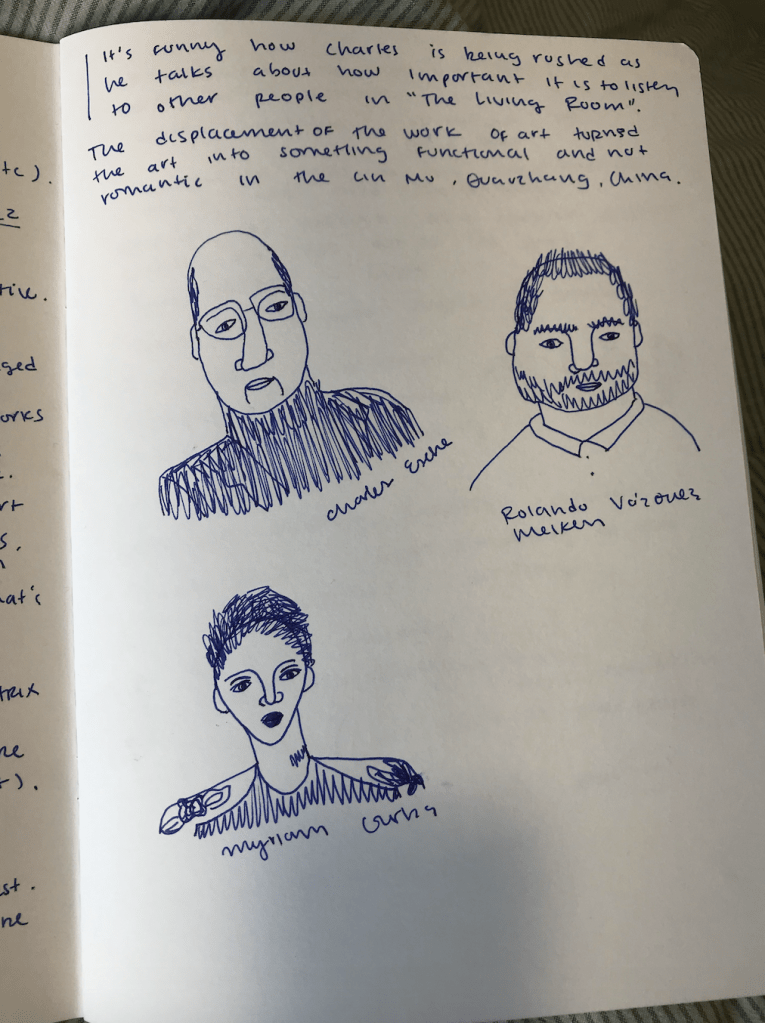 tc).
2
tive.
ged
orks
.
rt
s.
n
hat's
TRIX
ne
).
st.
ne
It's funny how Charles is being rushed as
he talks about how important it is to listen
to other people in "The Living Room".
The displacement of the work of art turned
the art into something functional and not
romantic in the Lin Mu, Guavzhang, China.
Charles Esche
Rolando Vázquez
Melken
Myriam